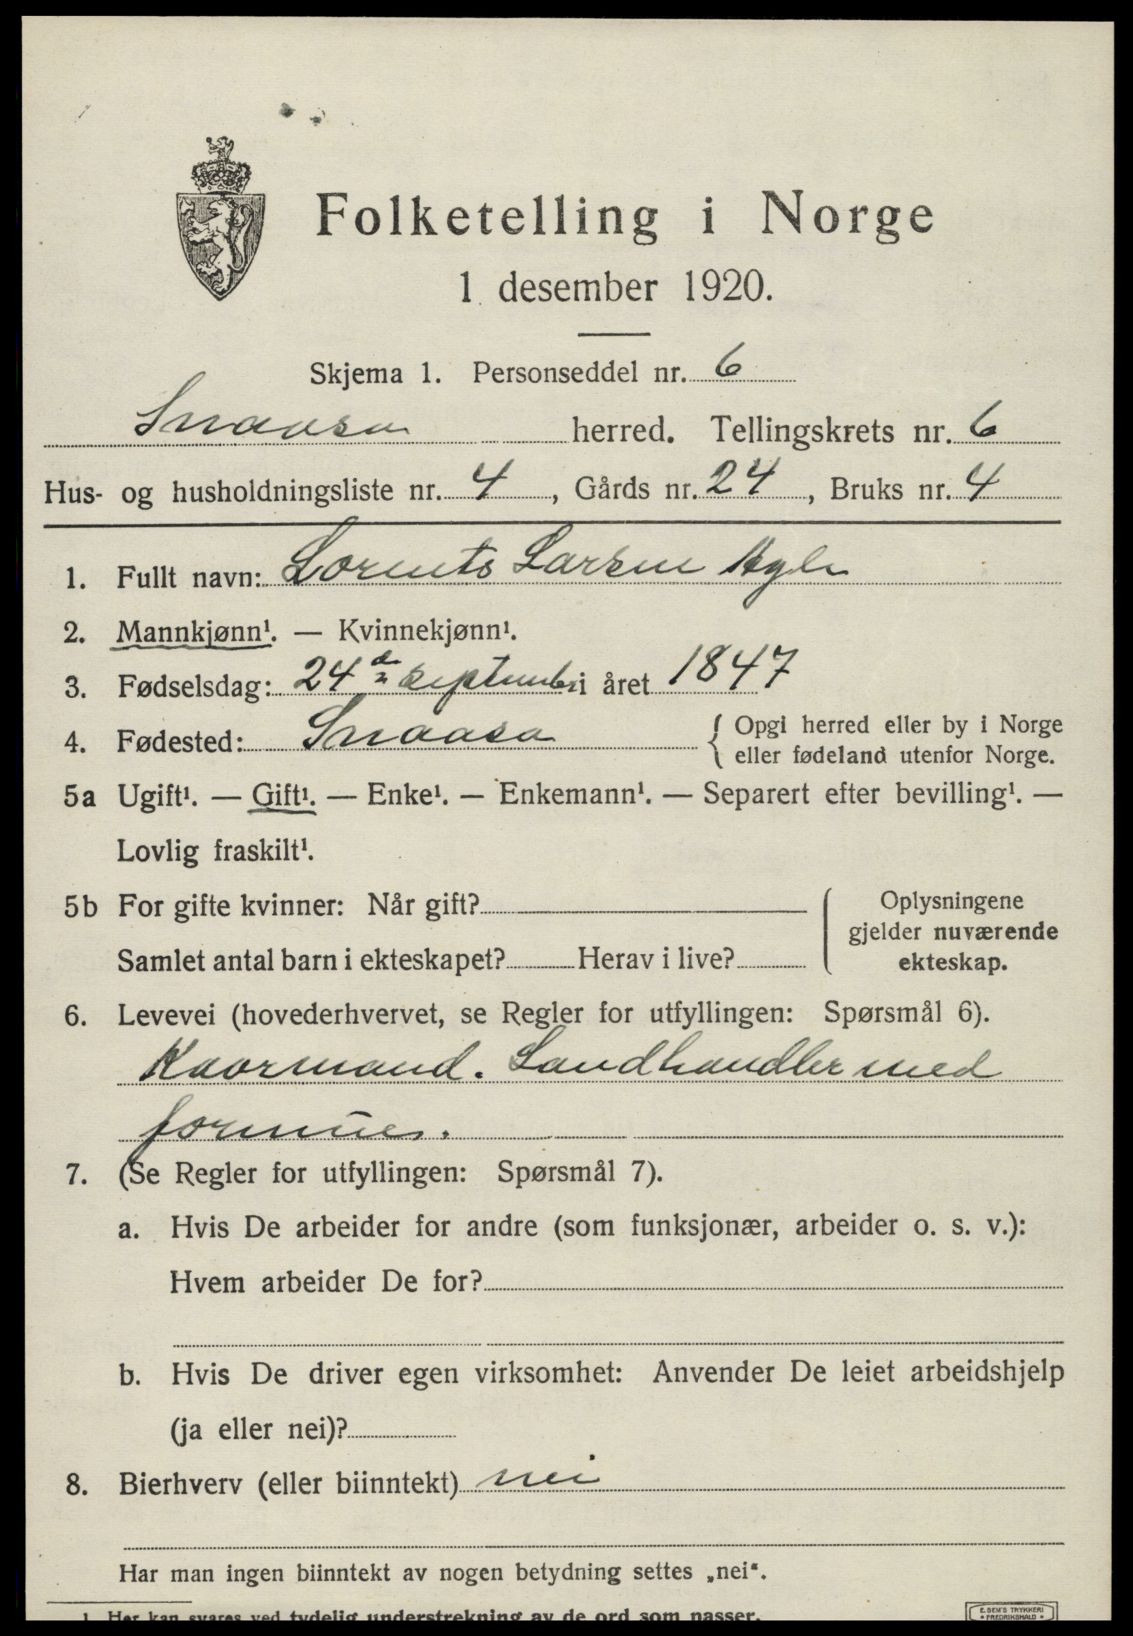 Folketelling i Norge
1. desember 1920.
Skjema 1. Personseddel nr. 6
Snaasa herred. Tellingskrets nr. 6
Hus- og husholdningsliste nr. 4, Gårds nr. 24, Bruks nr. 4
1. Fullt navn: Lorents Larsen
2. Mannkjønn¹. — Kvinnekjønn¹.
3. Fødselsdag: 24de september i året 1847
4. Fødested: Snaasa { Opgi herred eller by i Norge
eller fødeland utenfor Norge.
5a Ugift¹. — Gift¹. — Enke¹. — Enkemann¹. — Separert efter bevilling¹. —
Lovlig fraskilt¹.
5b For gifte kvinner: Når gift?
Samlet antal barn i ekteskapet? Herav i live?
Oplysningene
gjelder nuværende
ekteskap.
6. Levevei (hovederhvervet, se Regler for utfyllingen: Spørsmål 6).
Kaarmand. Landhandler med
formues.
7. (Se Regler for utfyllingen: Spørsmål 7).
a. Hvis De arbeider for andre (som funksjonær, arbeider o. s. v.):
Hvem arbeider De for?
b. Hvis De driver egen virksomhet: Anvender De leiet arbeidshjelp
(ja eller nei)?
8. Bierhverv (eller biinntekt) nei
Har man ingen biinntekt av nogen betydning settes „nei“.
1. Her kan svares ved tydelig understrekning av de ord som passer.
E. SEM'S TRYKKERI
• FREDRIKSHALD •